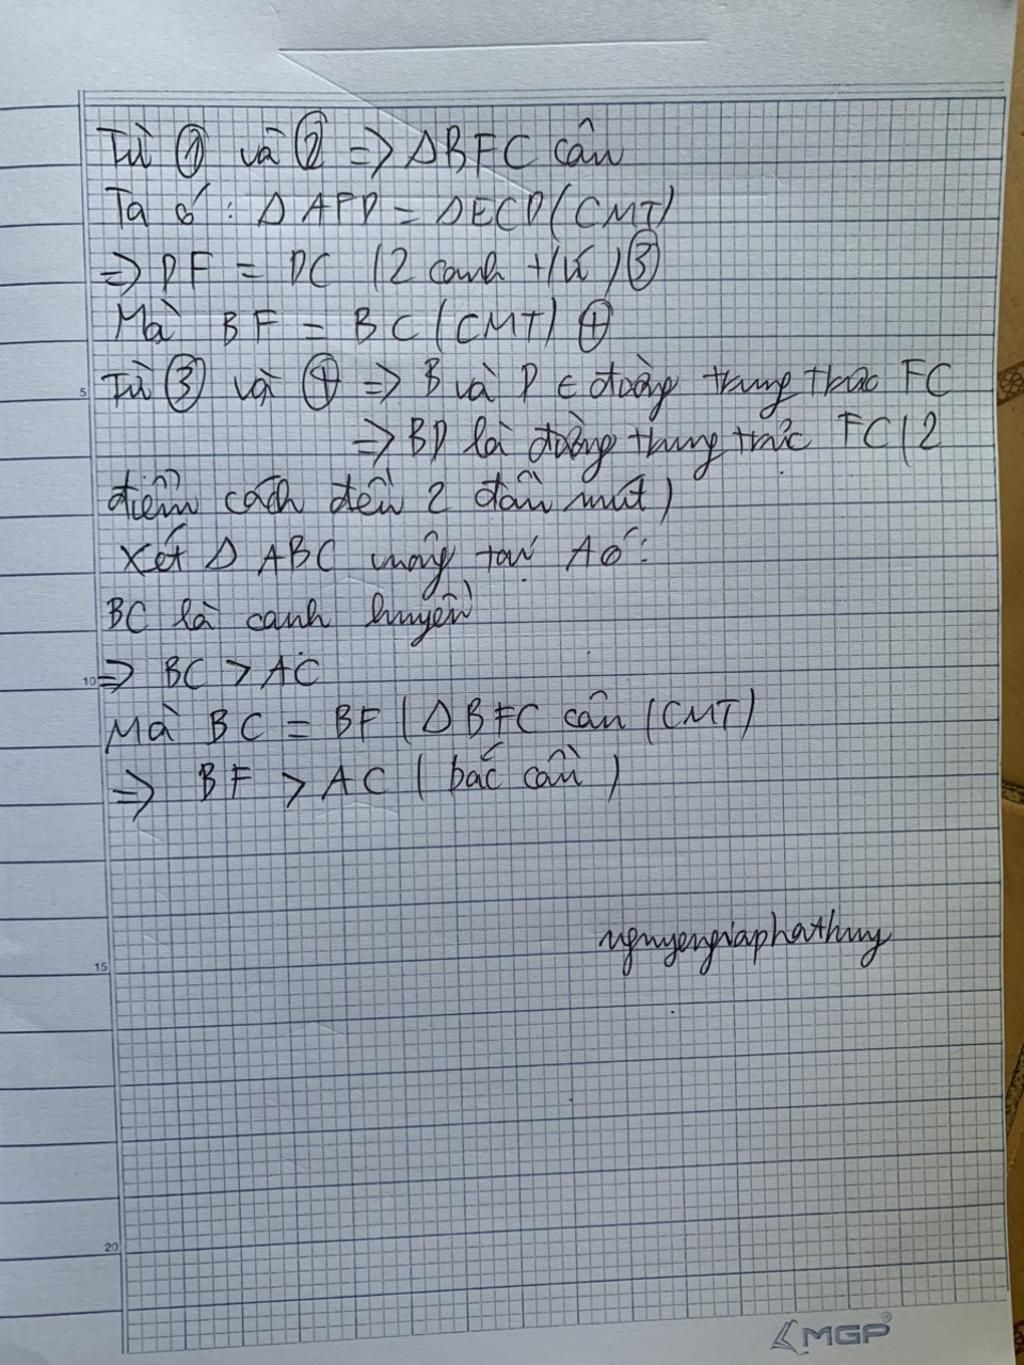 Từ ① và ② => ΔBFC cân
Ta có: Δ AFD = ΔECD (CMT)
=> DF = DC (2 cạnh t/ứ) ③
Mà BF = BC (CMT) ④
Từ ③ và ④ => B và D ∈ đường trung trực FC
=> BD là đường trung trực FC (2
điểm cách đều 2 đầu mút)
Xét Δ ABC vuông tại A có:
BC là cạnh huyền
=> BC > AC
Mà BC = BF (ΔBFC cân (CMT)
=> BF > AC (bắc cầu)
nguyengiaphathuy
5
10
15
20
MGP